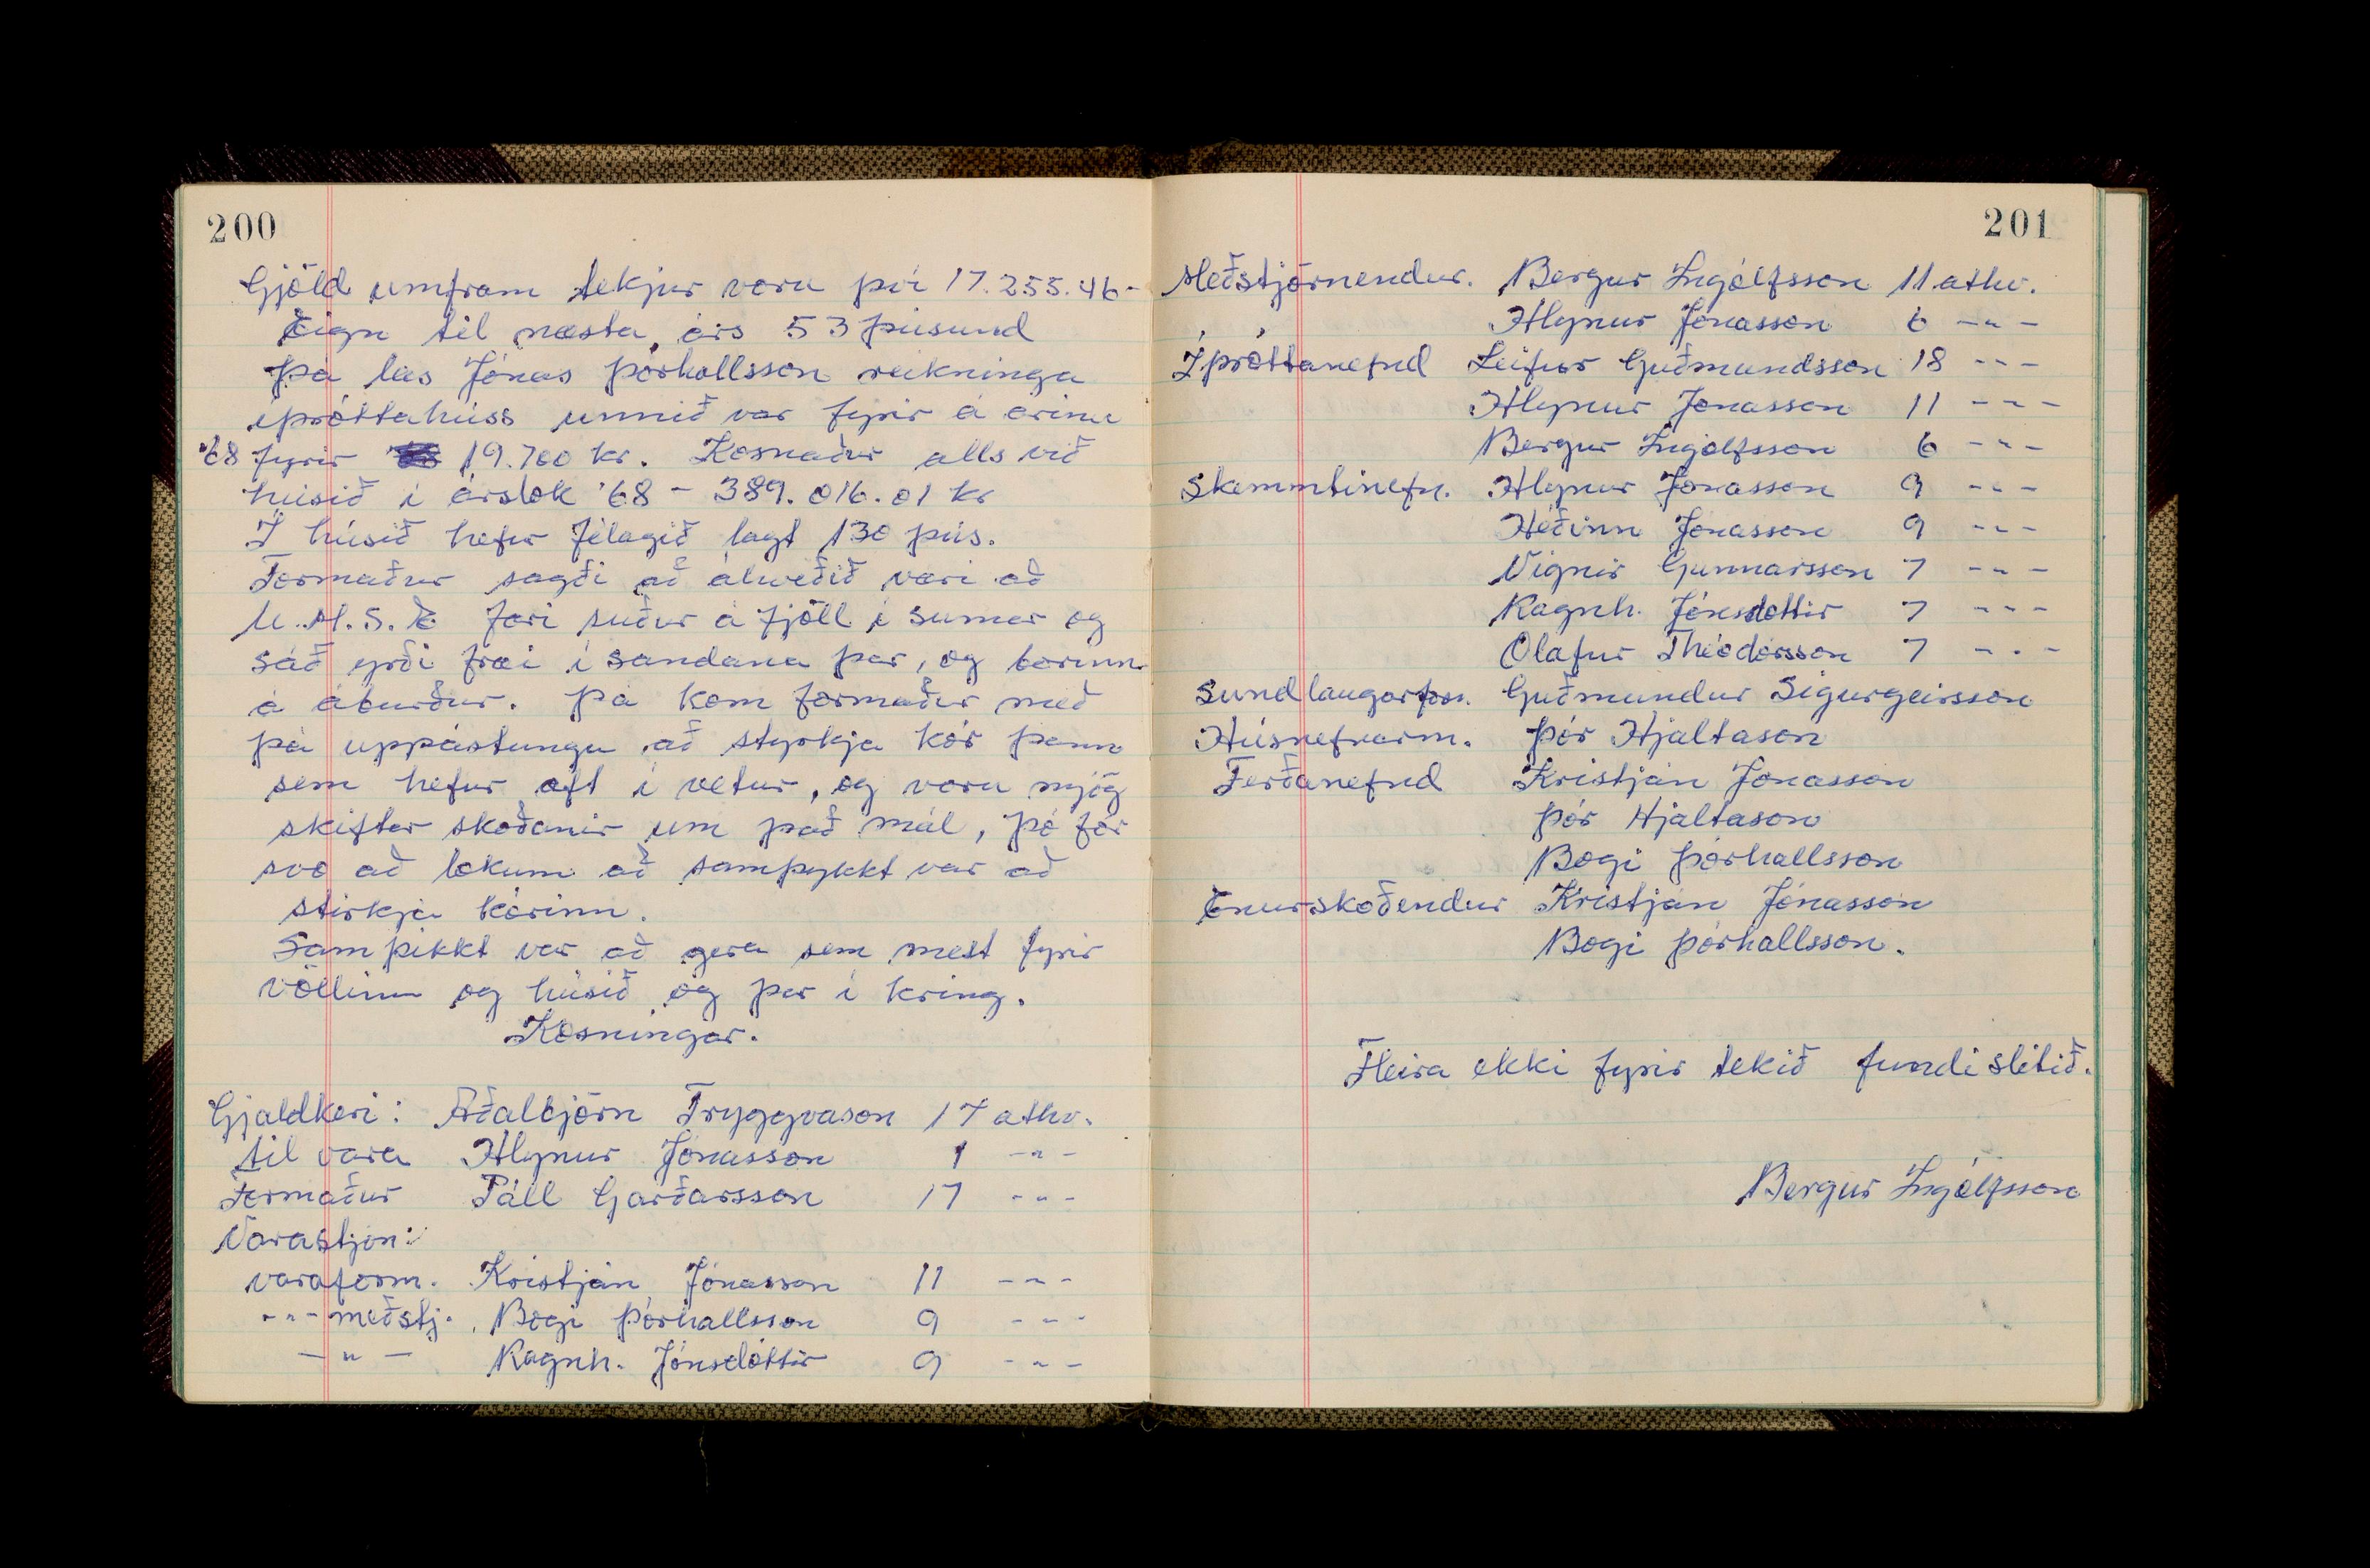 200
Gjöld umfram tekjur voru því 17.255.46-
Eign til næsta árs 53 þúsund
Þá las Jónas Þórhallsson reikninga
íþróttahúss unnið var fyrir á árinu
'68 fyrir 19.700 kr. Kosnaður alls við
húsið í árslok '68 - 389.016.01 kr
Í húsið hefur félagið lagt 130 þús.
Formaður sagði að ákveðið væri að
U.M.S.E fari suður á fjöll í sumar og
sáð yrði fræi í sandana þar, og borinn
á áburður. Þá kom formaður með
þá uppástungu að styrkja kór þann
sem hefur æft í vetur, og voru mjög
skiftar skoðanir um það mál, þó fór
svo að lokum að samþykkt var að
stirkja kórinn.
Samþikkt var að gera sem mest fyrir
völlinn og húsið og þar í kring.
Kosningar.
Gjaldkeri: Aðalbjörn Tryggvason 17 atkv.
til vara Hlynur Jónasson 1 -"-
Formaður Páll Garðarsson 17 -"-
Varastjón:
varaform. Kristján Jónasson 11 -"-
-"- meðstj. Bogi Þórhallsson 9 -"-
-"- Ragnh. Jónsdóttir 9 -"-
201
Meðstjórnendur. Bergur Ingólfsson 11 atkv.
, , Hlynur Jónasson 6 -"-
Íþróttanefnd Leifur Guðmundsson 18 -"-
Hlynur Jónasson 11 -"-
Bergur Ingólfsson 6 -"-
Skemmtinefn. Hlynur Jónasson 9 -"-
Héðinn Jónasson 9 -"-
Vignir Gunnarsson 7 -"-
Ragnh. Jónsdóttir 7 -"-
Ólafur Theódórsson 7 -"-
Sundlaugarfor. Guðmundur Sigurgeirsson
Húsnefnarm. Þór Hjaltason
Ferðanefnd Kristján Jónasson
Þór Hjaltason
Bogi Þórhallsson
Enurskoðendur Kristján Jónasson
Bogi Þórhallsson.
Fleira ekki fyrir tekið fundi slitið.
Bergur Ingólfsson